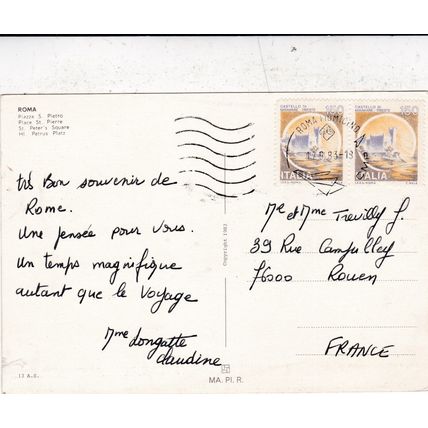 ROMA
Piazza S. Pietro
Place St. Pierre
St. Peter's Square
Hl. Petrus Platz
CASTELLO DI
MIRAMARE - TRIESTE
150
ITALIA
CASTELLO DI
MIRAMARE - TRIESTE
150
ITALIA
ROMA FIUMICINO
très Bon souvenir de
Rome.
Une pensée pour vous.
Un temps magnifique
autant que le Voyage
Mme Longatte
Claudine
Copyright 1982
Mr et Mme Trevilly J.
39 Rue
76000 Rouen
FRANCE
13 A.E.
MA. PI. R.